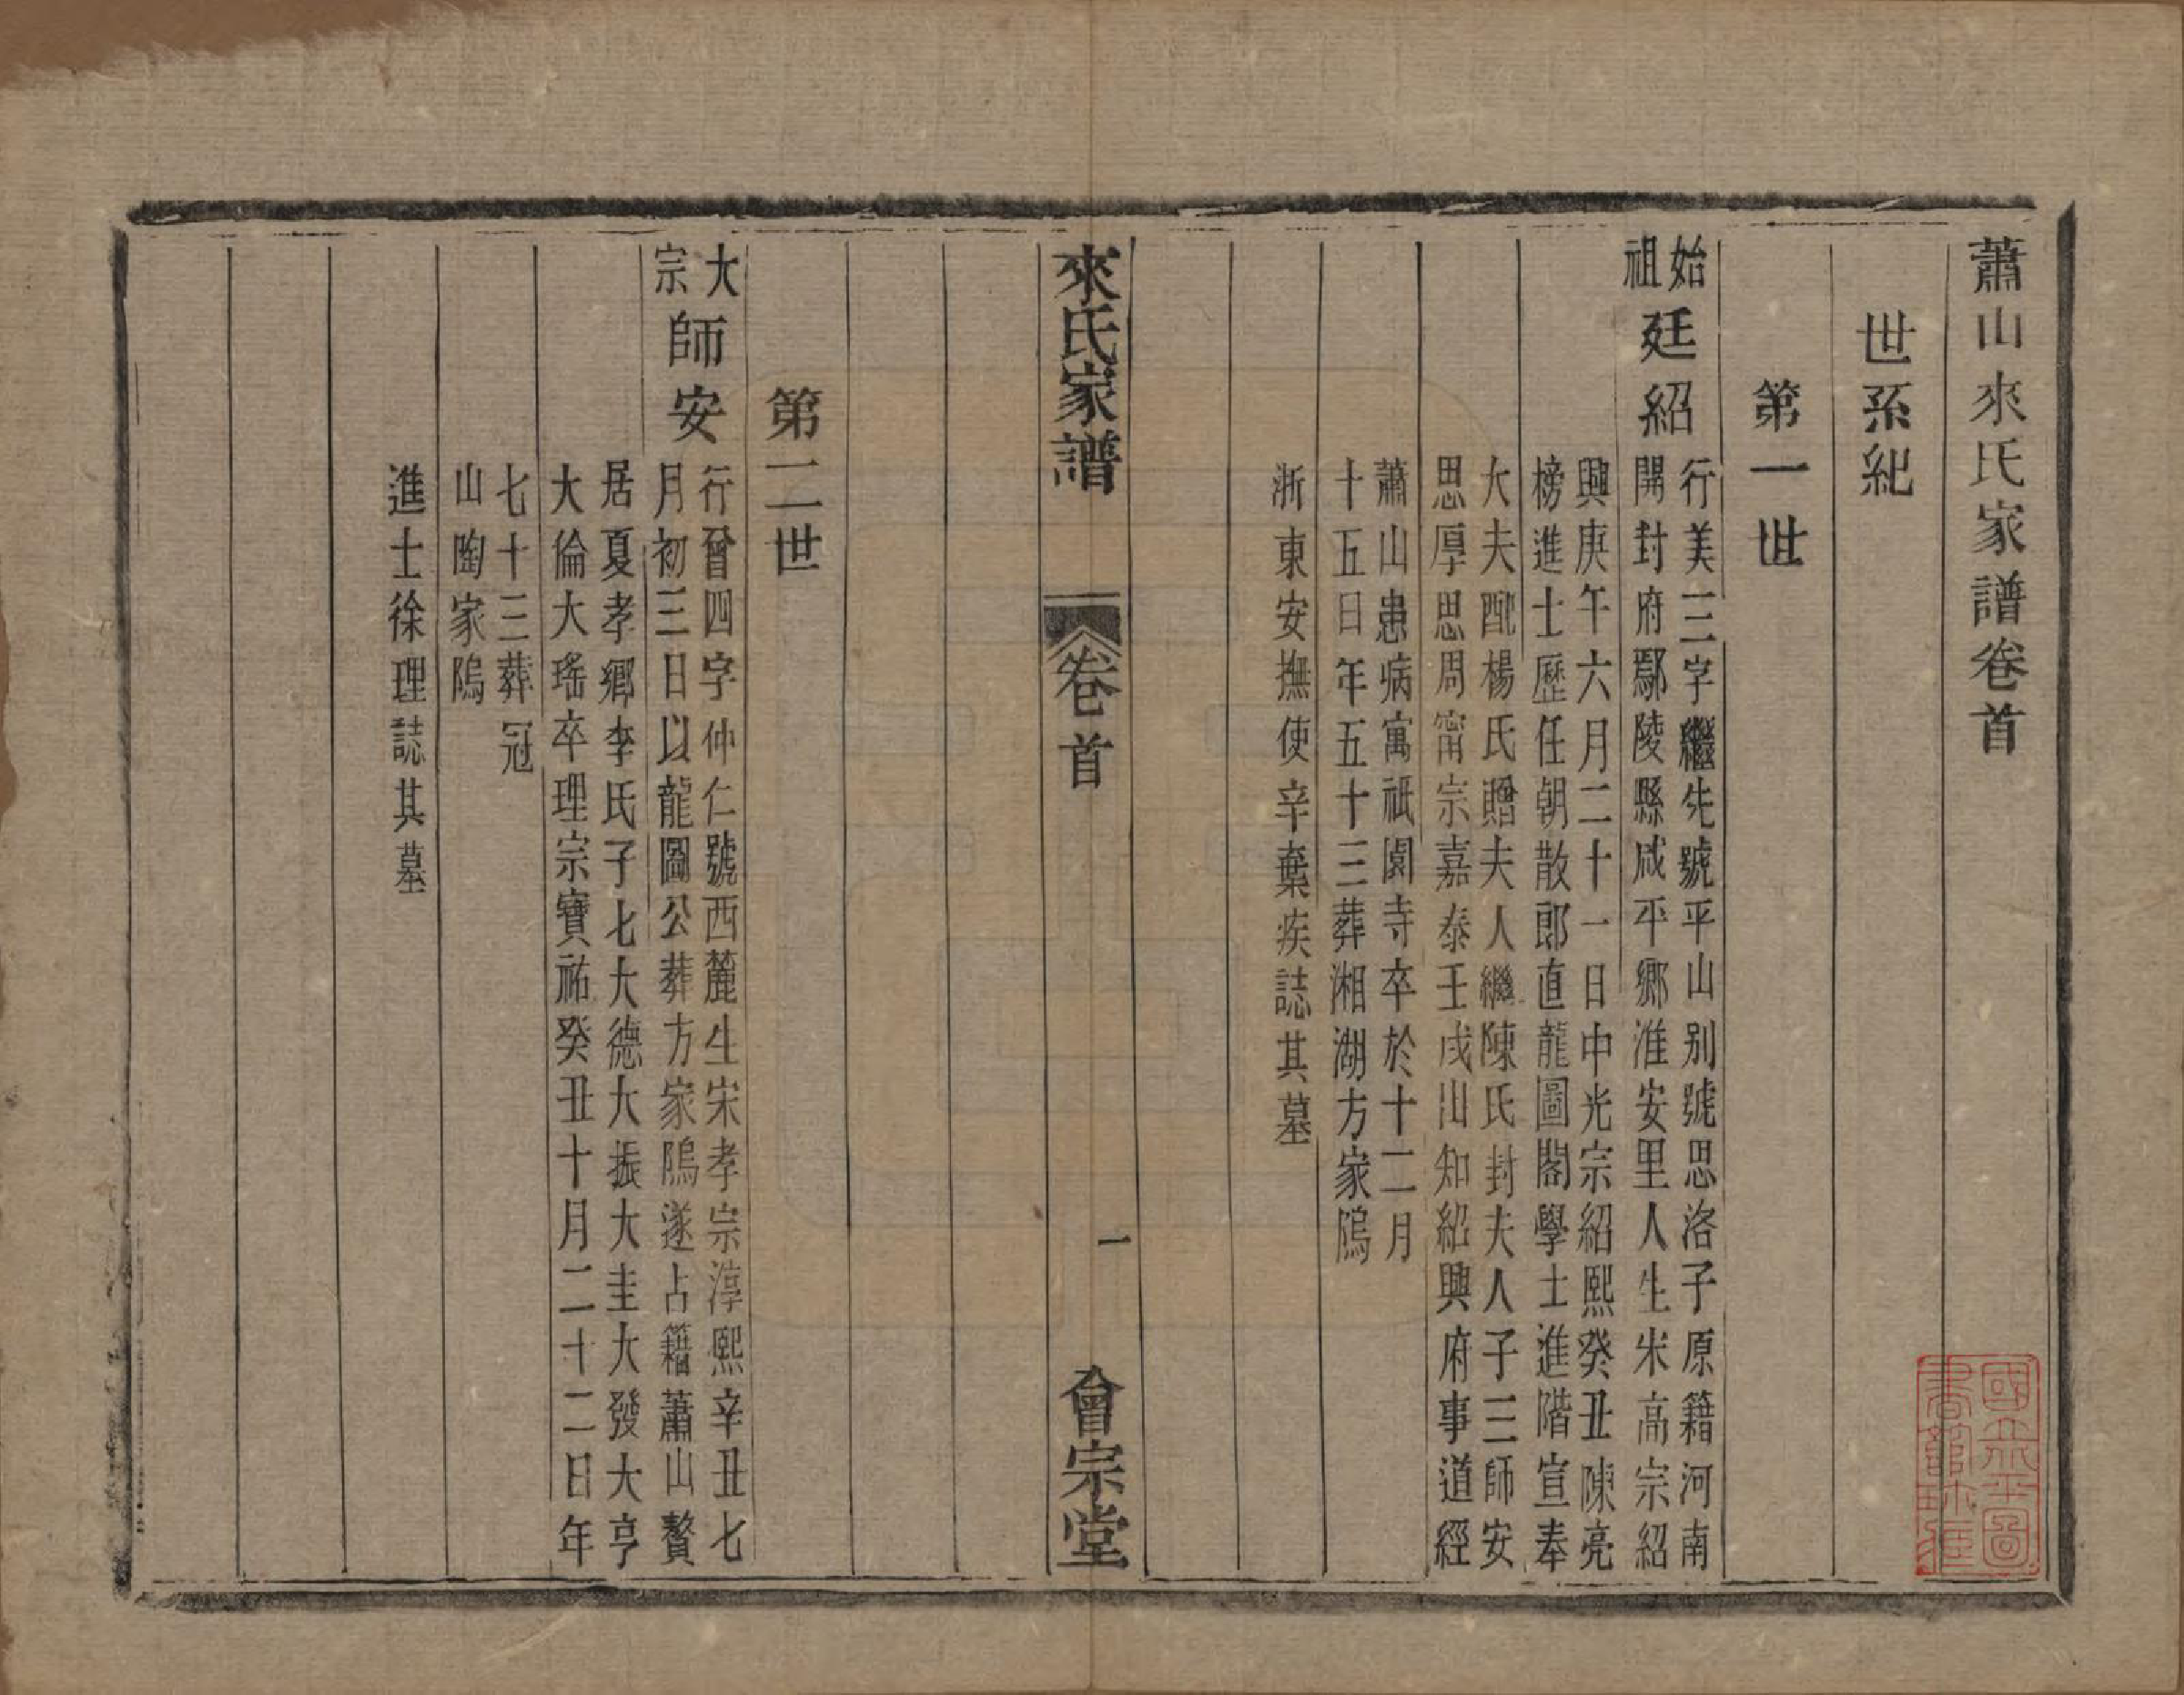 蕭山來氏家譜卷首
世系紀
第一世
始祖
廷紹
行美三字繼先號平山别號思洛子原籍河南
開封府鄢陵縣咸平鄉淮安里人生宋高宗紹
興庚午六月二十一日中光宗紹熙癸丑陳亮
榜進士歷任朝散郎直龍圖閣學士進階宣奉
大夫配楊氏贈夫人繼陳氏封夫人子三師安
思厚思周甯宗嘉泰壬戌出知紹興府事道經
蕭山患病寓祇園寺卒於十二月
十五日年五十三葬湘湖方家隖
浙東安撫使辛棄疾誌其墓
來氏家譜
卷首
一
會宗堂
第二世
大宗
師安
行晉四字仲仁號西麓生宋孝宗淳熙辛丑七
月初三日以龍圖公葬方家隖遂占籍蕭山贅
居夏孝鄉李氏子七大德大振大圭大發大亨
大倫大瑤卒理宗寶祐癸丑十月二十二日年
七十三葬冠
山陶家隖
進士徐理誌其墓
國立北平圖
書館珍藏